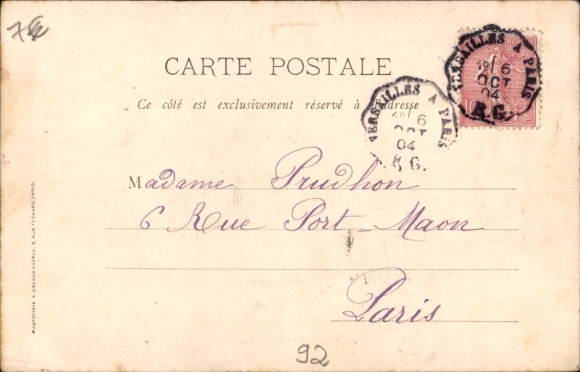 7€
CARTE POSTALE
Ce côté est exclusivement réservé à l'adresse
VERSAILLES A PARIS
6
OCT
04
R.G.
VERSAILLES A PARIS
6
OCT
04
R.G.
Madame Prudhon
6 Rue Port-Maon
Paris
92